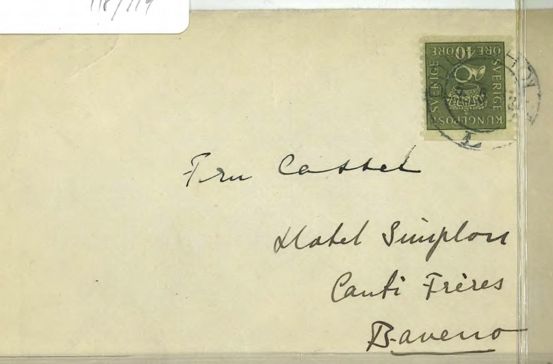 118/119
40 ÖRE ÖRE
SVERIGE
SVERIGE
KUNGL POST
Fru Cassel
Hotel Simplon
Canti Frères
Baveno